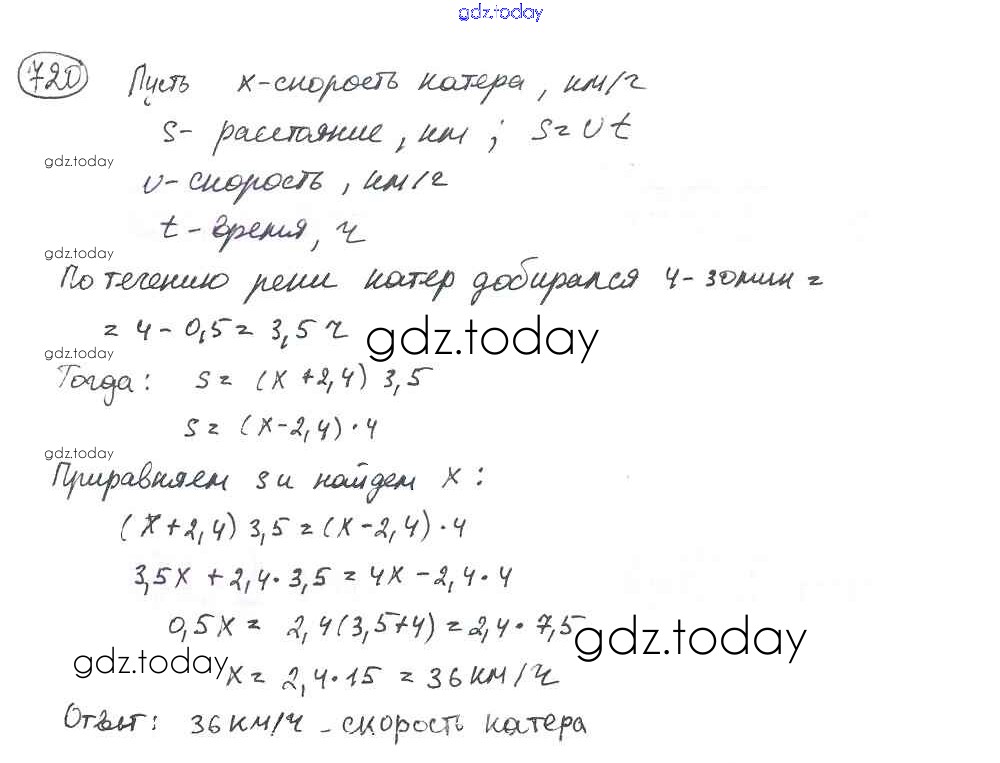 gdz.today
720 Пусть х-скорость катера, км/ч
s- расстояние, км; s=υt
gdz.today
υ-скорость, км/ч
t-время, ч
gdz.today
По течению реки катер добирался 4-30мин=
=4-0,5=3,5 ч
gdz.today
gdz.today
Тогда: s=(x+2,4)3,5
s=(x-2,4)·4
gdz.today
Приравняем s и найдем х:
(x+2,4)3,5=(x-2,4)·4
3,5x+2,4·3,5=4x-2,4·4
0,5x=2,4(3,5+4)=2,4·7,5
gdz.today
gdz.today
x=2,4·15=36км/ч
Ответ: 36км/ч-скорость катера